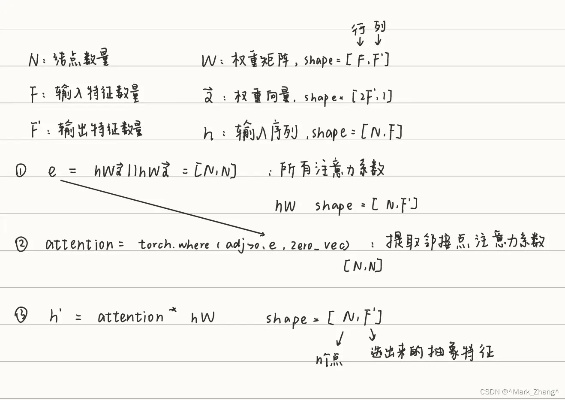 行 列
N: 结点数量 W: 权重矩阵, shape=[F,F']
F: 输入特征数量 a⃗: 权重向量, shape=[2F',1]
F': 输出特征数量 h: 输入序列, shape=[N,F]
① e = hWa⃗||hWa⃗ = [N,N] :所有注意力系数
hW shape=[N,F']
② attention= torch.where(adj>0,e,zero_vec) : 提取邻接点注意力系数
[N,N]
③ h' = attention * hW shape=[N,F']
n个点 造出来的抽象特征
CSDN @^Mark_Zheng^